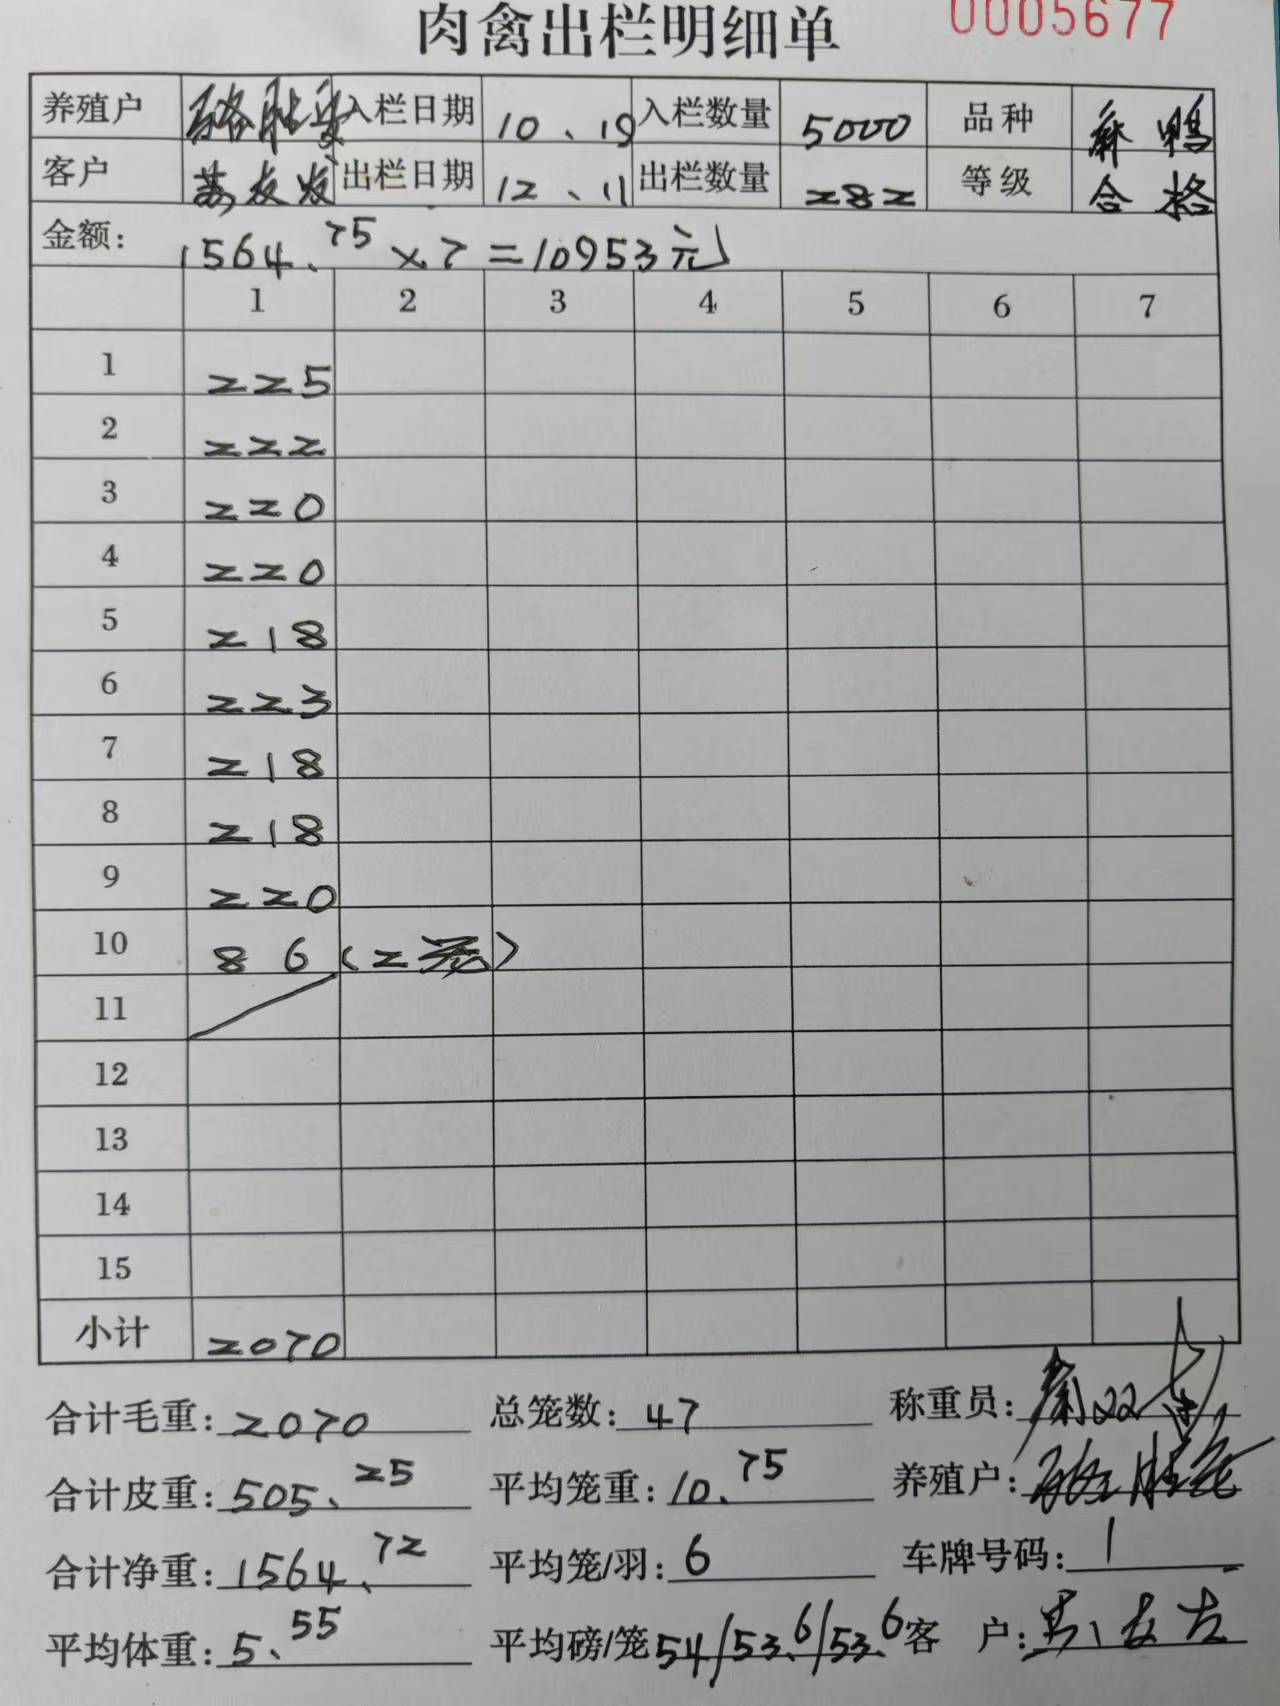 肉禽出栏明细单 0005677
养殖户 入栏日期 10、19 入栏数量 5000 品种 麻鸭
客户 友发 出栏日期 12、11 出栏数量 282 等级 合格
金额: 1564、75 × 7 = 10953元
1 2 3 4 5 6 7
1 225
2 222
3 220
4 220
5 218
6 223
7 218
8 218
9 220
10 86 (2笼)
11
12
13
14
15
小计 2070
合计毛重: 2070 总笼数: 47 称重员:
合计皮重: 505、25 平均笼重: 10、75 养殖户:
合计净重: 1564、72 平均笼/羽: 6 车牌号码: 1
平均体重: 5、55 平均磅/笼 54/53、6/53、6 客 户: